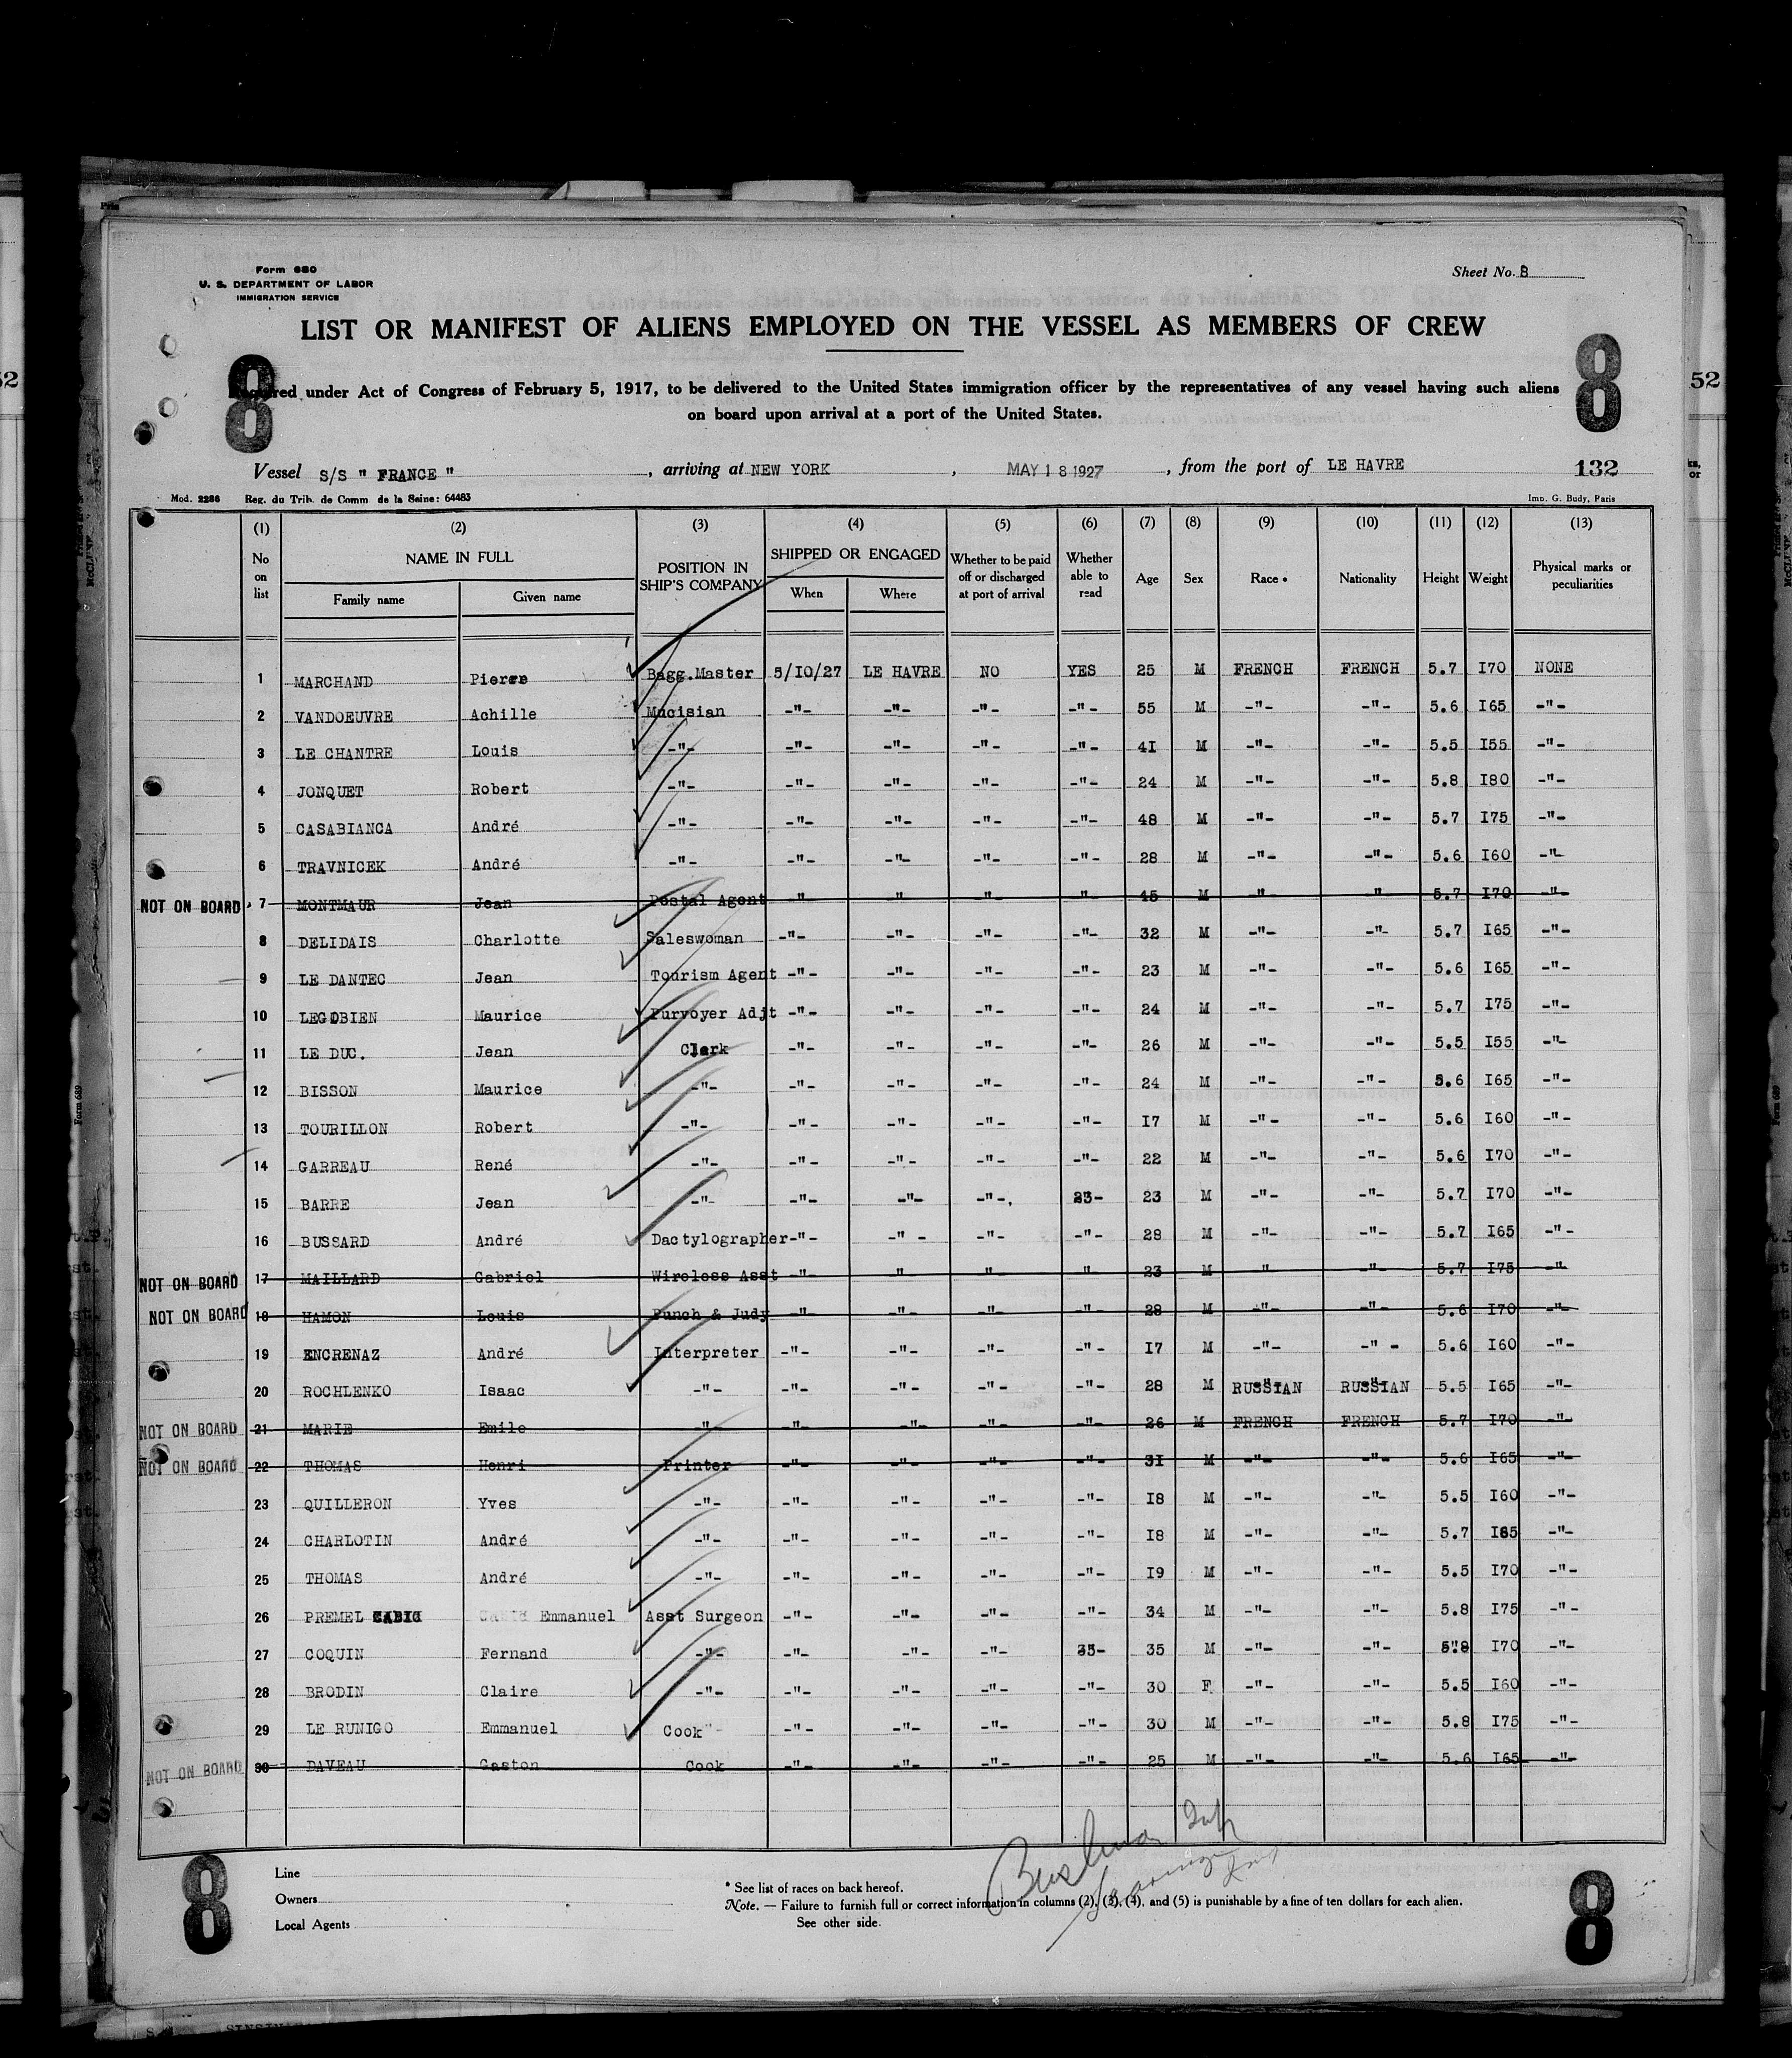 Form 680
U. S. DEPARTMENT OF LABOR
IMMIGRATION SERVICE
Sheet No. 8
LIST OR MANIFEST OF ALIENS EMPLOYED ON THE VESSEL AS MEMBERS OF CREW
8 8
under Act of Congress of February 5, 1917, to be delivered to the United States immigration officer by the representatives of any vessel having such aliens
on board upon arrival at a port of the United States.
52
Vessel S/S " FRANCE ", arriving at NEW YORK, MAY 18 1927, from the port of LE HAVRE 132
Mod. 2286 Reg. du Trib. de Comm de la Seine: 64483 Imp. G. Budy, Paris
(1) (2) (3) (4) (5) (6) (7) (8) (9) (10) (11) (12) (13)
No on list NAME IN FULL Family name Given name POSITION IN SHIP'S COMPANY SHIPPED OR ENGAGED When Where Whether to be paid off or discharged at port of arrival Whether able to read Age Sex Race * Nationality Height Weight Physical marks or peculiarities
1 MARCHAND Pierre Bagg.Master 5/10/27 LE HAVRE NO YES 25 M FRENCH FRENCH 5.7 I70 NONE
2 VANDOEUVRE Achille Mucisian -"- -"- -"- -"- 55 M -"- -"- 5.6 I65 -"-
3 LE CHANTRE Louis -"- -"- -"- -"- -"- 4I M -"- -"- 5.5 I55 -"-
4 JONQUET Robert -"- -"- -"- -"- -"- 24 M -"- -"- 5.8 I80 -"-
5 CASABIANCA André -"- -"- -"- -"- -"- 48 M -"- -"- 5.7 I75 -"-
6 TRAVNICEK André -"- -"- -"- -"- -"- 28 M -"- -"- 5.6 I60 -"-
NOT ON BOARD 7 MONTMAUR Jean Postal Agent -"- -"- -"- -"- 45 M -"- -"- 5.7 I70 -"-
8 DELIDAIS Charlotte Saleswoman -"- -"- -"- -"- 32 M -"- -"- 5.7 I65 -"-
9 LE DANTEC Jean Tourism Agent -"- -"- -"- -"- 23 M -"- -"- 5.6 I65 -"-
10 LEGOBIEN Maurice Purvoyer Adjt -"- -"- -"- -"- 24 M -"- -"- 5.7 I75 -"-
11 LE DUC. Jean Clerk -"- -"- -"- -"- 26 M -"- -"- 5.5 I55 -"-
12 BISSON Maurice -"- -"- -"- -"- -"- 24 M -"- -"- 5.6 I65 -"-
13 TOURILLON Robert -"- -"- -"- -"- -"- I7 M -"- -"- 5.6 I60 -"-
14 GARREAU René -"- -"- -"- -"- -"- 22 M -"- -"- 5.6 I70 -"-
15 BARRE Jean -"- -"- -"- -"-. 23- 23 M -"- -"- 5.7 I70 -"-
16 BUSSARD André Dactylographer -"- -"- -"- -"- 28 M -"- -"- 5.7 I65 -"-
NOT ON BOARD 17 MAILLARD Gabriel Wireless Asst -"- -"- -"- -"- 23 M -"- -"- 5.7 I75 -"-
NOT ON BOARD 18 HAMON Louis Punch & Judy -"- -"- -"- -"- 28 M -"- -"- 5.6 I70 -"-
19 ENCRENAZ André Interpreter -"- -"- -"- -"- I7 M -"- -"- 5.6 I60 -"-
20 ROCHLENKO Isaac -"- -"- -"- -"- -"- 28 M RUSSIAN RUSSIAN 5.5 I65 -"-
NOT ON BOARD 21 MARIE Emile -"- -"- -"- -"- -"- 26 M FRENCH FRENCH 5.7 I70 -"-
NOT ON BOARD 22 THOMAS Henri Printer -"- -"- -"- -"- 3I M -"- -"- 5.6 I65 -"-
23 QUILLERON Yves -"- -"- -"- -"- -"- I8 M -"- -"- 5.5 I60 -"-
24 CHARLOTIN André -"- -"- -"- -"- -"- I8 M -"- -"- 5.7 I65 -"-
25 THOMAS André -"- -"- -"- -"- -"- I9 M -"- -"- 5.5 I70 -"-
26 PREMEL CABIC Emmanuel Asst Surgeon -"- -"- -"- -"- 34 M -"- -"- 5.8 I75 -"-
27 COQUIN Fernand -"- -"- -"- -"- 35- 35 M -"- -"- 5.8 I70 -"-
28 BRODIN Claire -"- -"- -"- -"- -"- 30 F -"- -"- 5.5 I60 -"-
29 LE RUNIGO Emmanuel Cook -"- -"- -"- -"- 30 M -"- -"- 5.8 I75 -"-
NOT ON BOARD 30 DAVEAU Gaston Cook -"- -"- -"- -"- 25 M -"- -"- 5.6 I65 -"-
8 8
Line
Owners
Local Agents
* See list of races on back hereof.
Note. — Failure to furnish full or correct information in columns (2), (3), (4), and (5) is punishable by a fine of ten dollars for each alien.
See other side.
Form 689